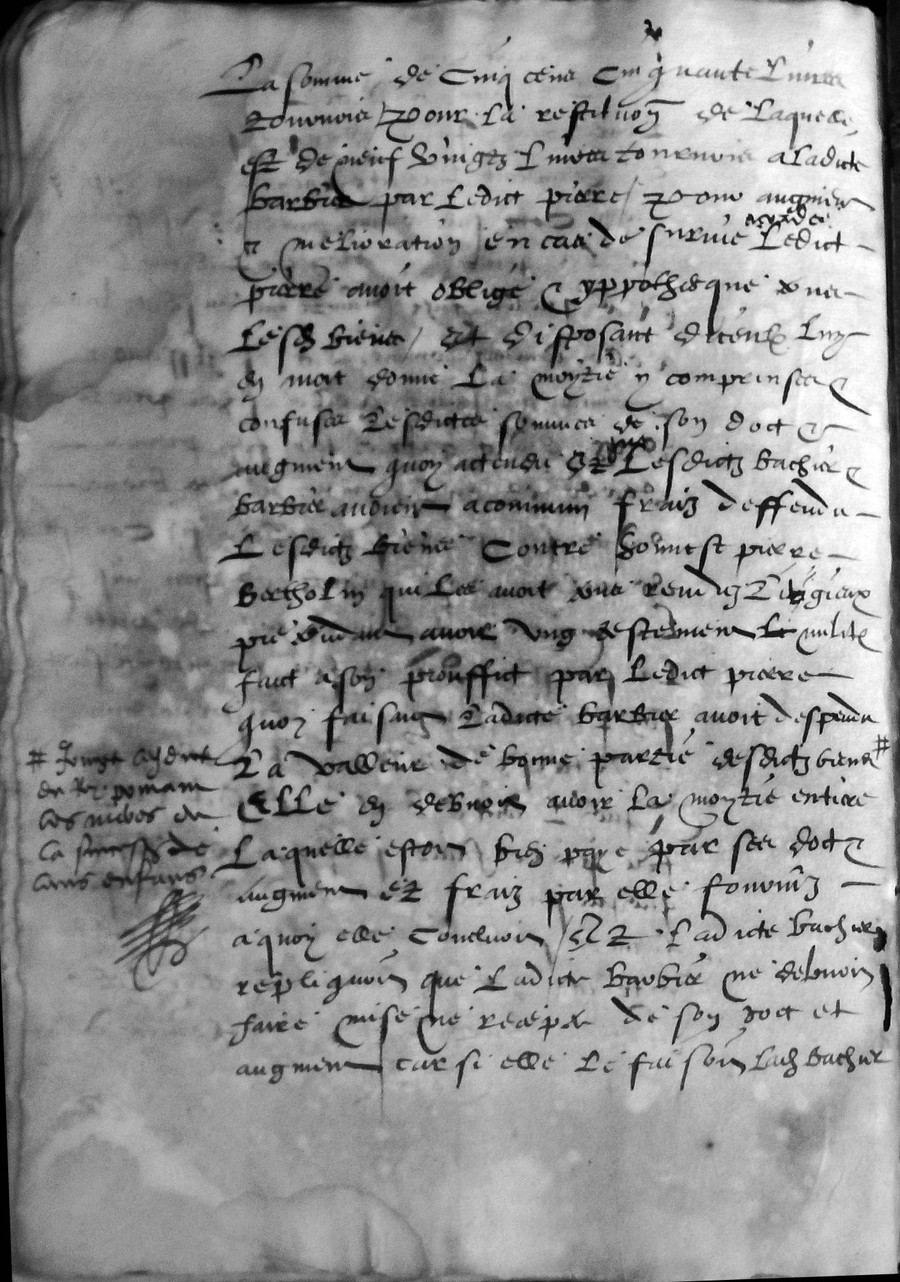 La somme de Cinq cens Cinquante Livres
tournois / pour la restituon de Laquelle
est de neuf vingtz Livres tournois a Ladicte
barbier par Ledict pierre / pour augment
& melioration en cas de survie Ledict
pierre avoit oblige & yppotheque
Lesd biens / Et disposant diceulx Luy
en avoit donne La moytie y comprinses &
confuses Lesdictes sommes de son dot &
augment quoy attendu Et Lesdictz bachier &
barbier avoient a commun fraiz deffendu
Lesdictz biens Contre honneste pierre
bertholin qui Les avoit renduz Litigieux
avoir ung testement
faict a son prouffict par Ledict pierre
quoy faisant Ladicte barbier avoit despendu
La valleur de bonne partie desdictz biens #
Elle en debvoit avoir La moytie entiere
Laquelle estoit bien paye par ses dot &
augment et fraiz par elle fourniz
a quoy elle Concluoit / Et Ladicte bachier
repliquoit que Ladicte barbier ne debvoit
faire mise ne recepte de son dot et
augment car si elle Le faisoit Lad bachier
# Joinct
du
les
la de
enfans